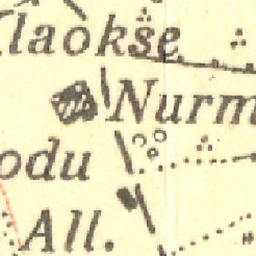 laokse
Nurm
odu
All.